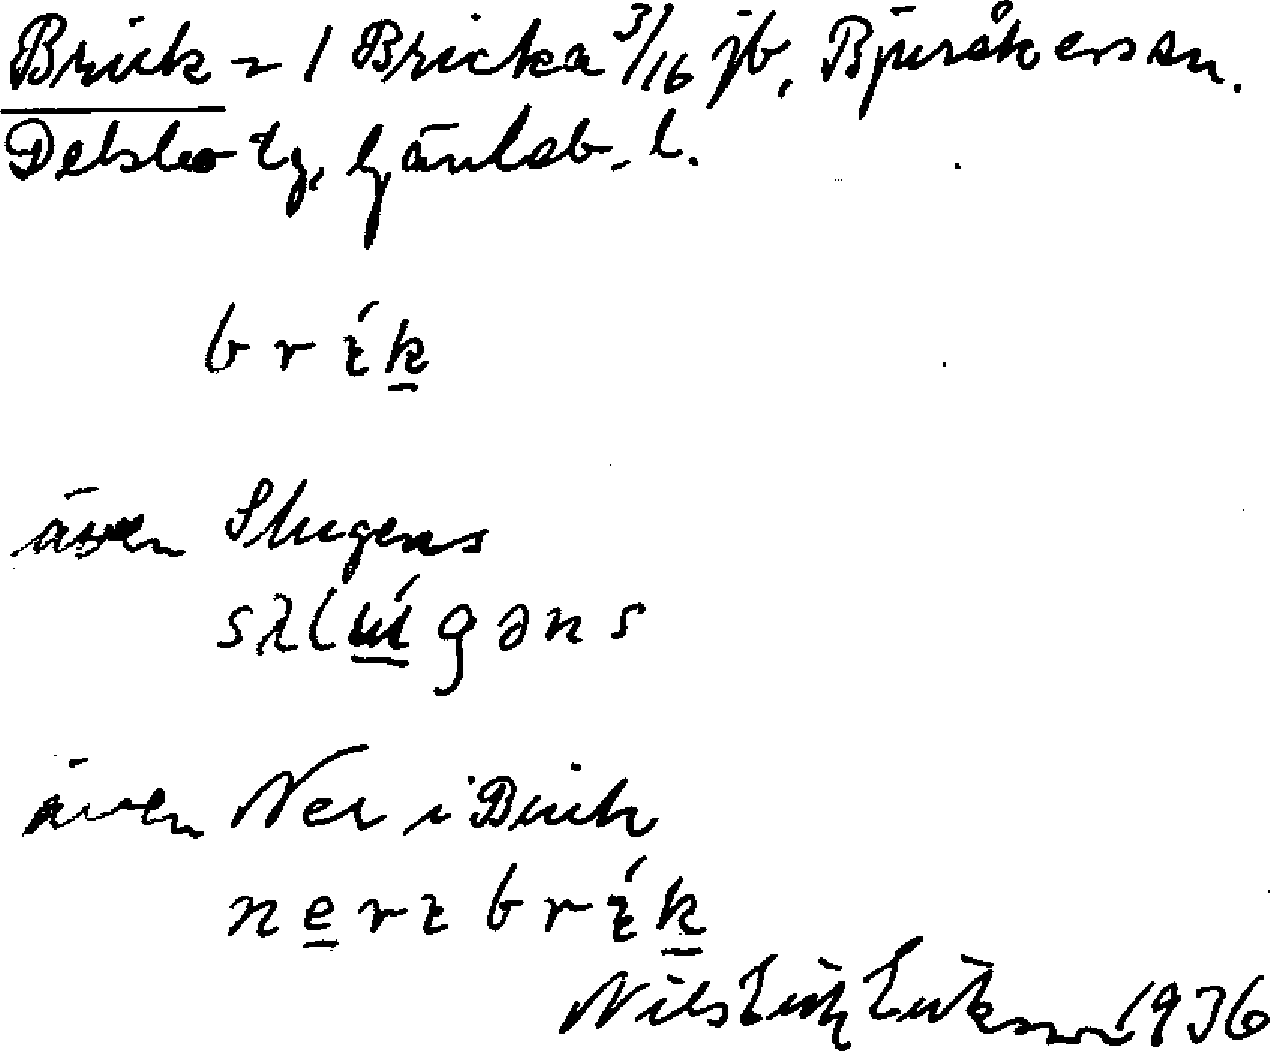 Brick = 1 Bricka 3/16 jb, Bjuråker sn.
Delsbo tg, Gävleb. l.
brík
även Slugens
slugəns
även Ner i Brick
nerɩ brík
Nils Erik Eriksson 1936